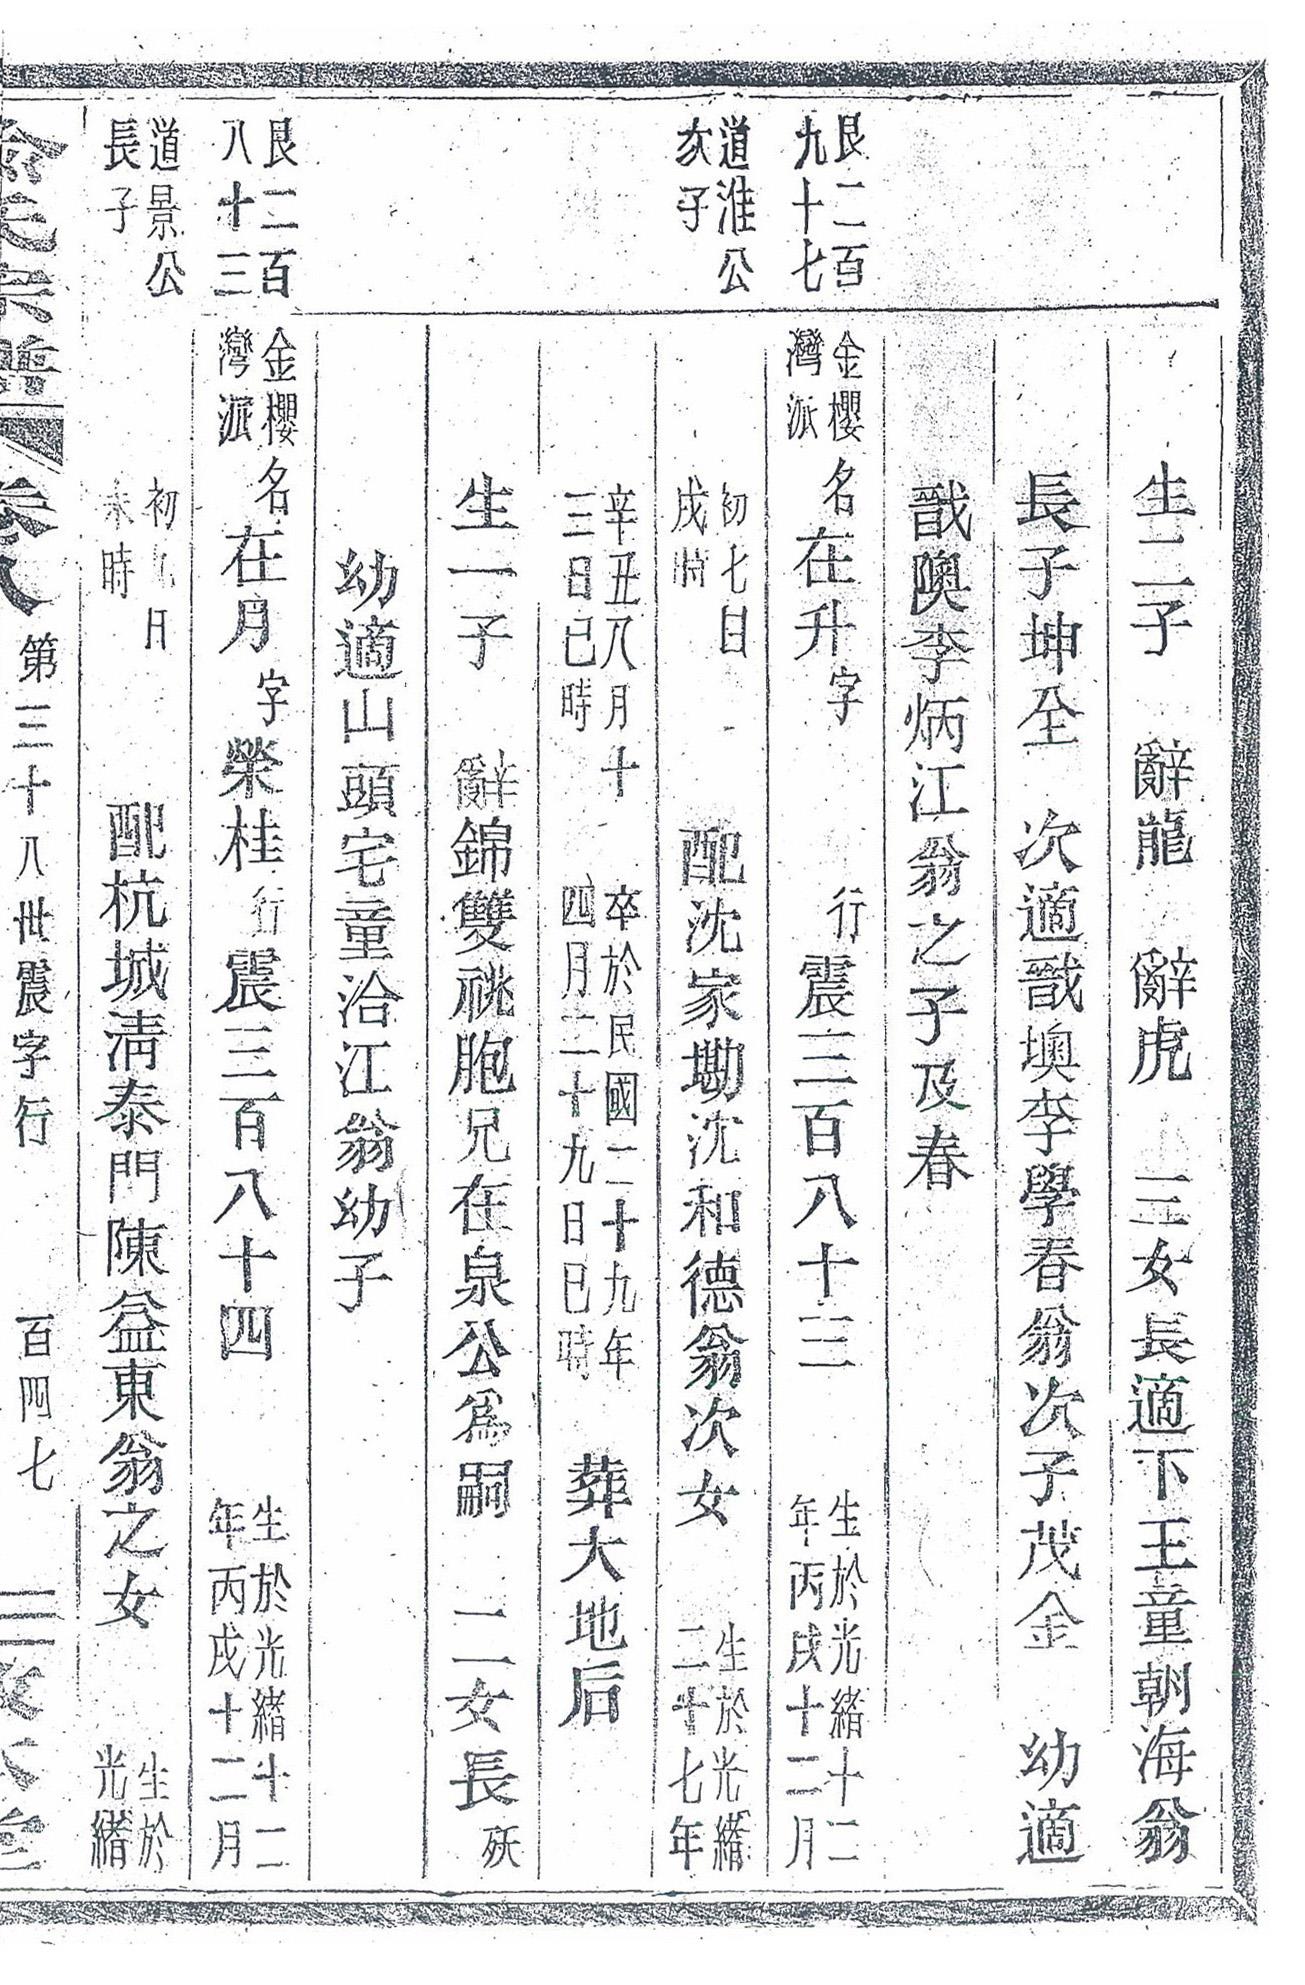 生二子 辭龍 辭虎 三女長適下王童朝海翁
長子坤全 次適戬墺李學春翁次子茂金 幼適
戬隩李炳江翁之子及春
艮二百
九十七
金櫻
灣派
名在升字 行震三百八十三 生於光緒十二
年丙戌十二月
道淮公
次子
初七日
戌時
配沈家墈沈和德翁次女 生於光緒
二十七年
辛丑八月十
三日巳時
卒於民國二十九年
四月二十九日巳時
葬大地后
生一子 辭錦雙祧胞兄在泉公爲嗣 二女長殀
幼適山頭宅童洽江翁幼子
艮二百
八十三
金櫻
灣派
名在月字榮桂行震三百八十四 生於光緒十二
年丙戌十二月
道景公
長子
初 日
未時
配杭城淸泰門陳益東翁之女 生於
光緒
宗譜 卷八 第三十八世震字行 百四七